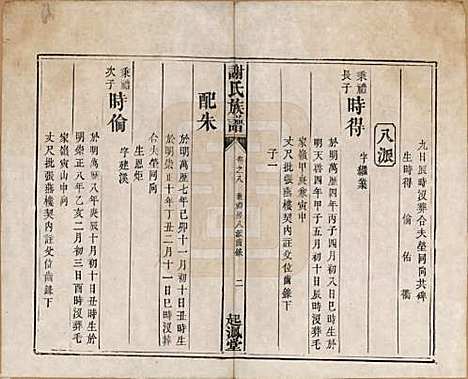 九日辰時沒葬合夫塋同向共碑
生時得 倫 佑 衢
八派
秉禮長子 時得 字繼業
於明萬曆四年丙子四月初八日巳時生
明天啟四年甲子五月初十日辰時沒葬毛
家嶺甲庚兼寅申
丈尺批張燕樓契內註交位齒錄下
子一
謝氏族譜
卷之八 秉禮房八派齒錄 二
起鳳堂
配朱
於明萬歷七年己卯十一月初十日丑時生
於明崇正十年丁丑二月十一日巳時沒葬
合夫塋同向
生恩炬
秉禮次子 時倫 字建溪
於明萬歷八年庚辰十月初十日丑時生於
明崇正八年乙亥二月初三日酉時沒葬毛
家嶺寅山申向
丈尺批張燕樓契內註交位齒錄下